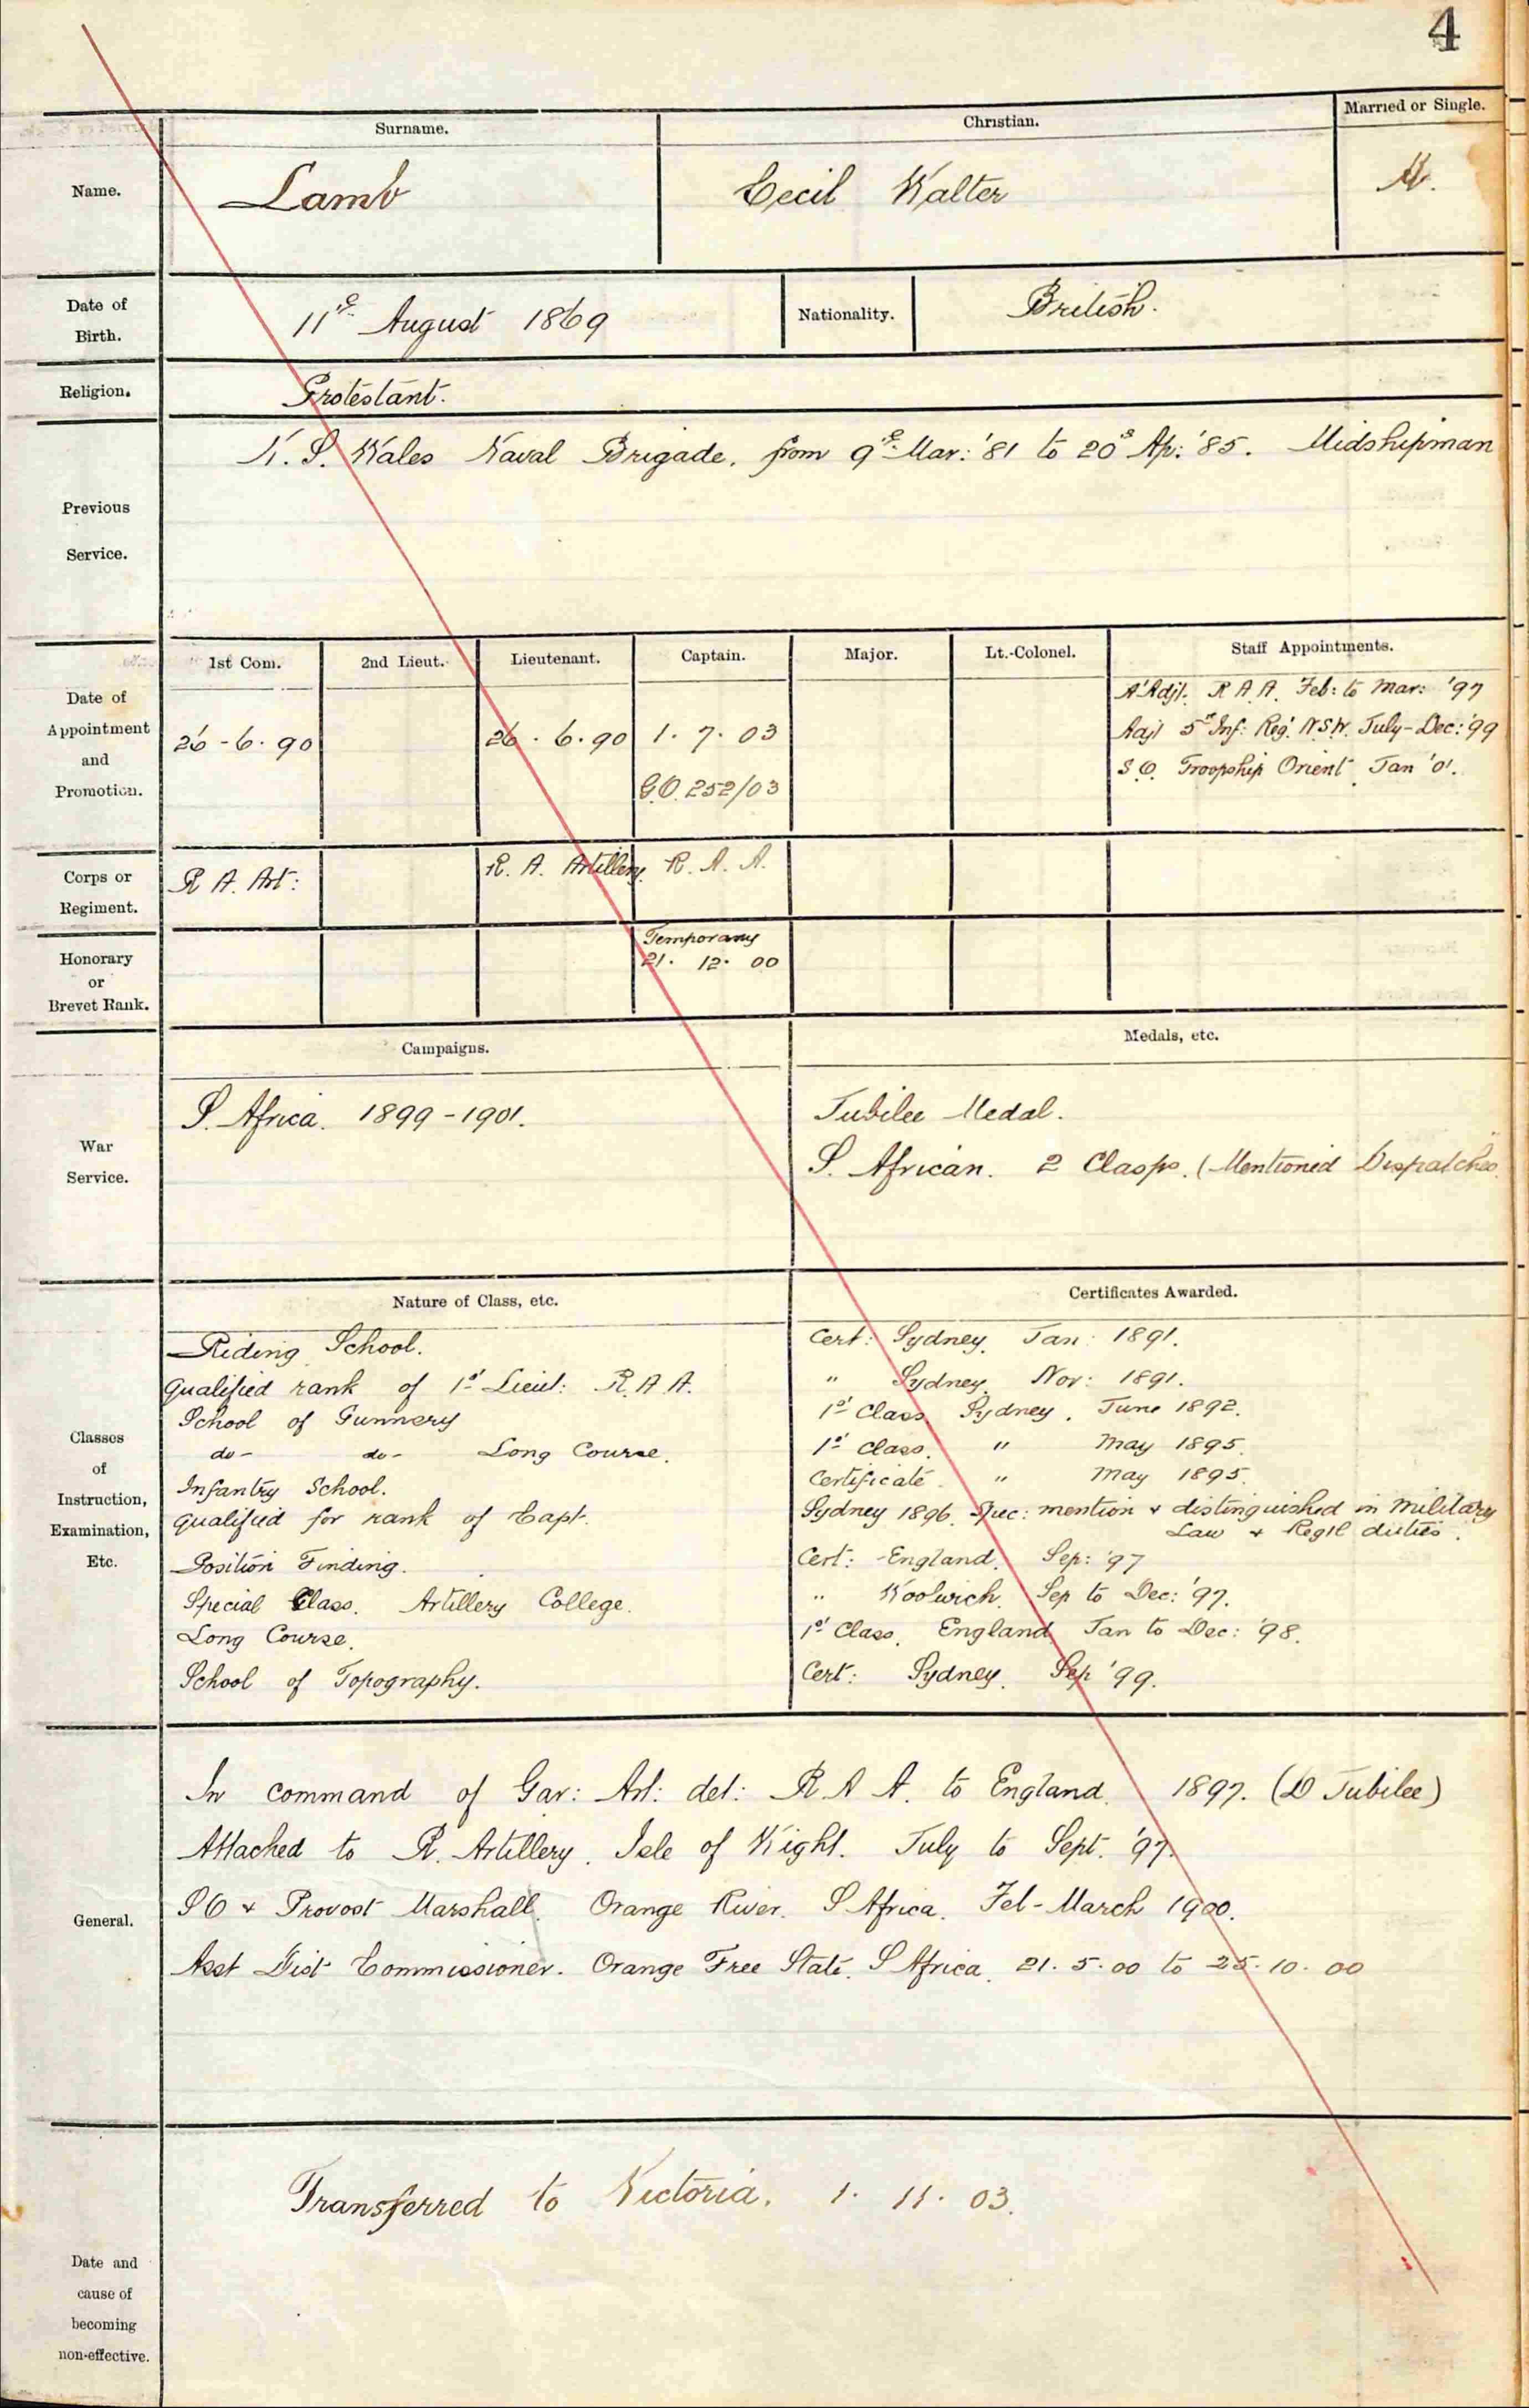 4
Surname. Christian. Married or Single.
Name. Lamb Cecil Walter M.
Date of Birth. 11th August 1869 Nationality. British.
Religion. Protestant.
Previous Service. N. S. Wales Naval Brigade, from 9th Mar: '81 to 20th Ap: '85. Midshipman
1st Com. 2nd Lieut. Lieutenant. Captain. Major. Lt.-Colonel. Staff Appointments.
A'Adjt. R A A. Feb: to Mar: '97
Date of Appointment and Promotion. 26-6-90 26.6.90 1.7.03 Adjt 5th Inf: Reg: N.S.W. July-Dec: '99
G.O. 252/03 S.O. Troopship Orient Jan '01.
Corps or Regiment. R A. Art: R. A. Artillery. R. A. A.
Honorary or Brevet Rank. Temporary
21. 12. 00
Campaigns. Medals, etc.
War Service. S. Africa. 1899-1901. Jubilee Medal.
S. African. 2 Clasps. (Mentioned Dispatches
Nature of Class, etc. Certificates Awarded.
Classes of Instruction, Examination, Etc.
Riding School. Cert: Sydney. Jan: 1891.
Qualified rank of 1st Lieut: R. A A. " Sydney. Nov: 1891.
School of Gunnery 1st Class. Sydney. June 1892.
do- do- Long Course. 1st Class. " May 1895.
Infantry School. Certificate. " May 1895.
qualified for rank of Capt. Sydney 1896. Spec: mention & distinguished in Military
Law & Regtl duties.
Position Finding. Cert: England. Sep: '97
Special Class. Artillery College. " Woolwich. Sep to Dec: '97.
Long Course. 1st Class. England. Jan to Dec: '98.
School of Topography. Cert: Sydney. Sep '99.
General.
In command of Gar: Art: det: R A A. to England. 1897. (D Jubilee)
Attached to R. Artillery. Isle of Wight. July to Sept. '97.
S O & Provost Marshall. Orange River. S Africa. Feb-March 1900.
Asst Dist Commissioner. Orange Free State. S Africa. 21.5.00 to 25.10.00
Transferred to Victoria. 1. 11. 03.
Date and cause of becoming non-effective.